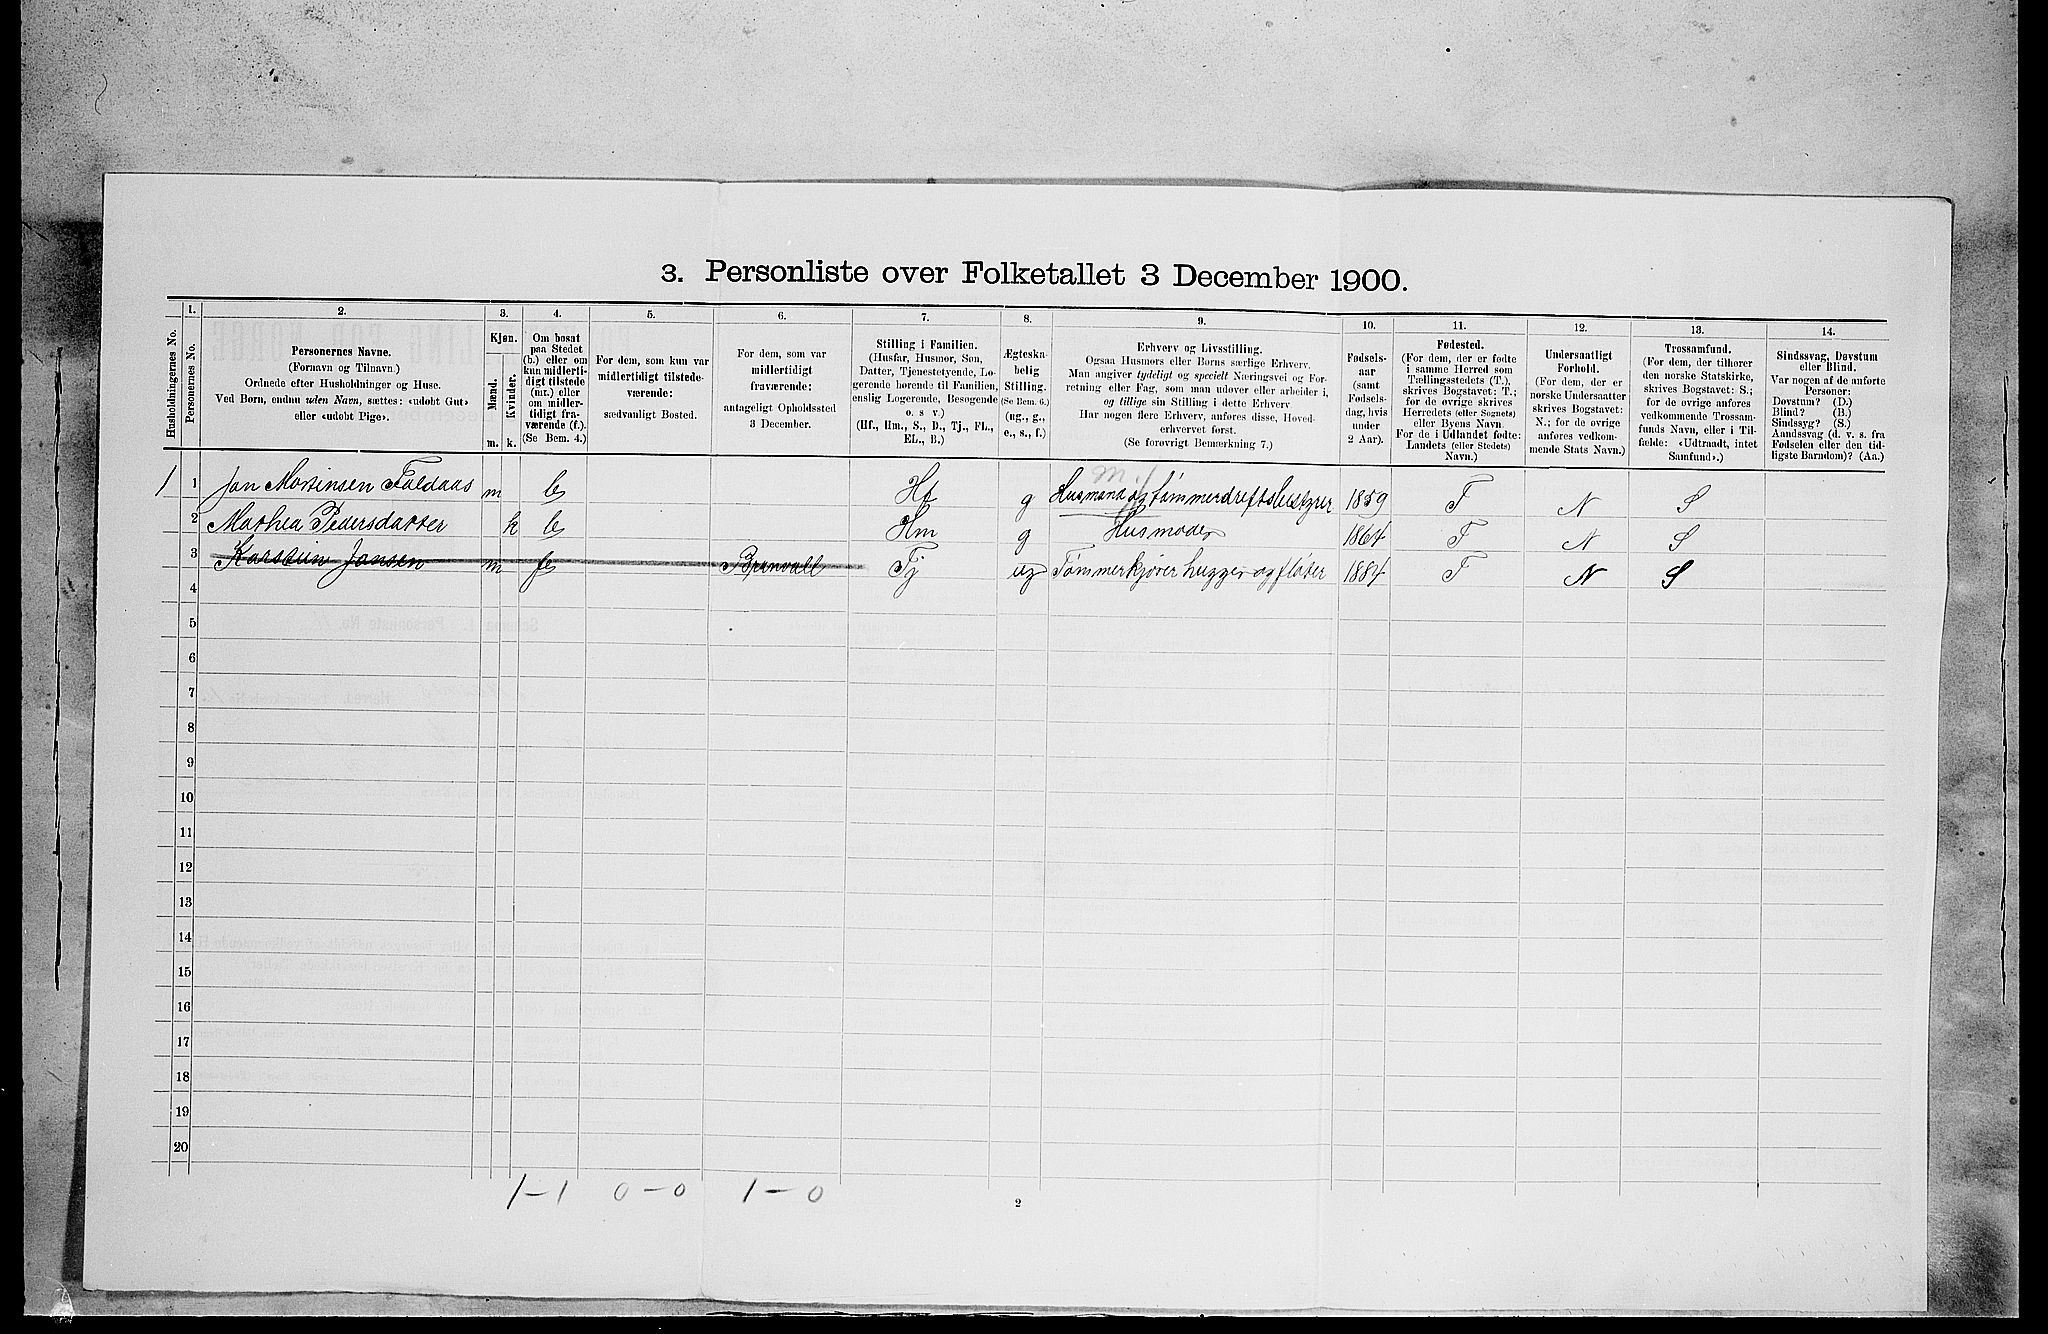 3. Personliste over Folketallet 3 December 1900.
Husholdningernes No.
1.
Personernes No.
2.
Personernes Navne.
(Fornavn og Tilnavn.)
Ordnede efter Husholdninger og Huse.
Ved Børn, endnu uden Navn, sættes: «udøbt Gut»
eller «udøbt Pige».
3.
Kjøn.
Mænd.
Kvinder.
m.
k.
4.
Om bosat
paa Stedet
(b.) eller om
kun midlerti-
digt tilstede
(mt.) eller
om midler-
tidigt fra-
værende (f.).
(Se Bem. 4.)
5.
For dem, som kun var
midlertidigt tilstede-
værende:
sædvanligt Bosted.
6.
For dem, som var
midlertidigt
fraværende:
antageligt Opholdssted
3 December.
7.
Stilling i Familien.
(Husfar, Husmor, Søn,
Datter, Tjenestetyende, Lo-
gerende hørende til Familien,
enslig Logerende, Besøgende
o. s v.)
(Hf., Hm., S., D., Tj., FL.,
EL., B.)
8.
Ægteska-
belig
Stilling.
(Se Bem. 6.)
(ug., g.,
e., s., f.)
9.
Erhverv og Livsstilling.
Ogsaa Husmors eller Børns særlige Erhverv.
Man angiver tydeligt og specielt Næringsvei og For-
retning eller Fag, som man udøver eller arbeider i,
og tillige sin Stilling i dette Erhverv
Har nogen flere Erhverv, anføres disse, Hoved-
erhvervet først.
(Se forøvrigt Bemærkning 7.)
10.
Fødsels-
aar
(samt
Fødsels-
dag, hvis
under
2 Aar).
11.
Fødested.
(For dem, der er fødte
i samme Herred som
Tællingsstedets (T.),
skrives Bogstavet: T.;
for de øvrige skrives
Herredets (eller Sognets)
eller Byens Navn.
For de i Udlandet fødte:
Landets (eller Stedets)
Navn.)
12.
Undersaatligt
Forhold.
(For dem, der er
norske Undersaatter
skrives Bogstavet:
N.; for de øvrige
anføres vedkom-
mende Stats Navn.)
13.
Trossamfund.
(For dem, der tilhører
den norske Statskirke,
skrives Bogstavet: S.;
for de øvrige anføres
vedkommende Trossam-
funds Navn, eller i Til-
fælde: «Udtraadt, intet
Samfund».)
14.
Sindssvag, Døvstum
eller Blind.
Var nogen af de anførte
Personer:
Døvstum? (D.)
Blind? (B.)
Sindssyg? (S.)
Aandssvag (d. v. s. fra
Fødselen eller den tid-
ligste Barndom)? (Aa.)
1 1 Jan Mortinsen Foldaas m b Hf g Husmand og tømmerdriftsbestyrer 1859 T N S
2 Mathea Pedersdatter k b Hm g Husmoder 1864 T N S
3 Karstein Jansen m f Branvall Tj ug Tømmerkjører hugger og fløter 1884 T N S
4
5
6
7
8
9
10
11
12
13
14
15
16
17
18
19
20
1-1 0-0 1-0
2